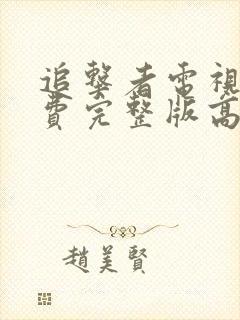 追擊者電視
費完整版高
趙美賢